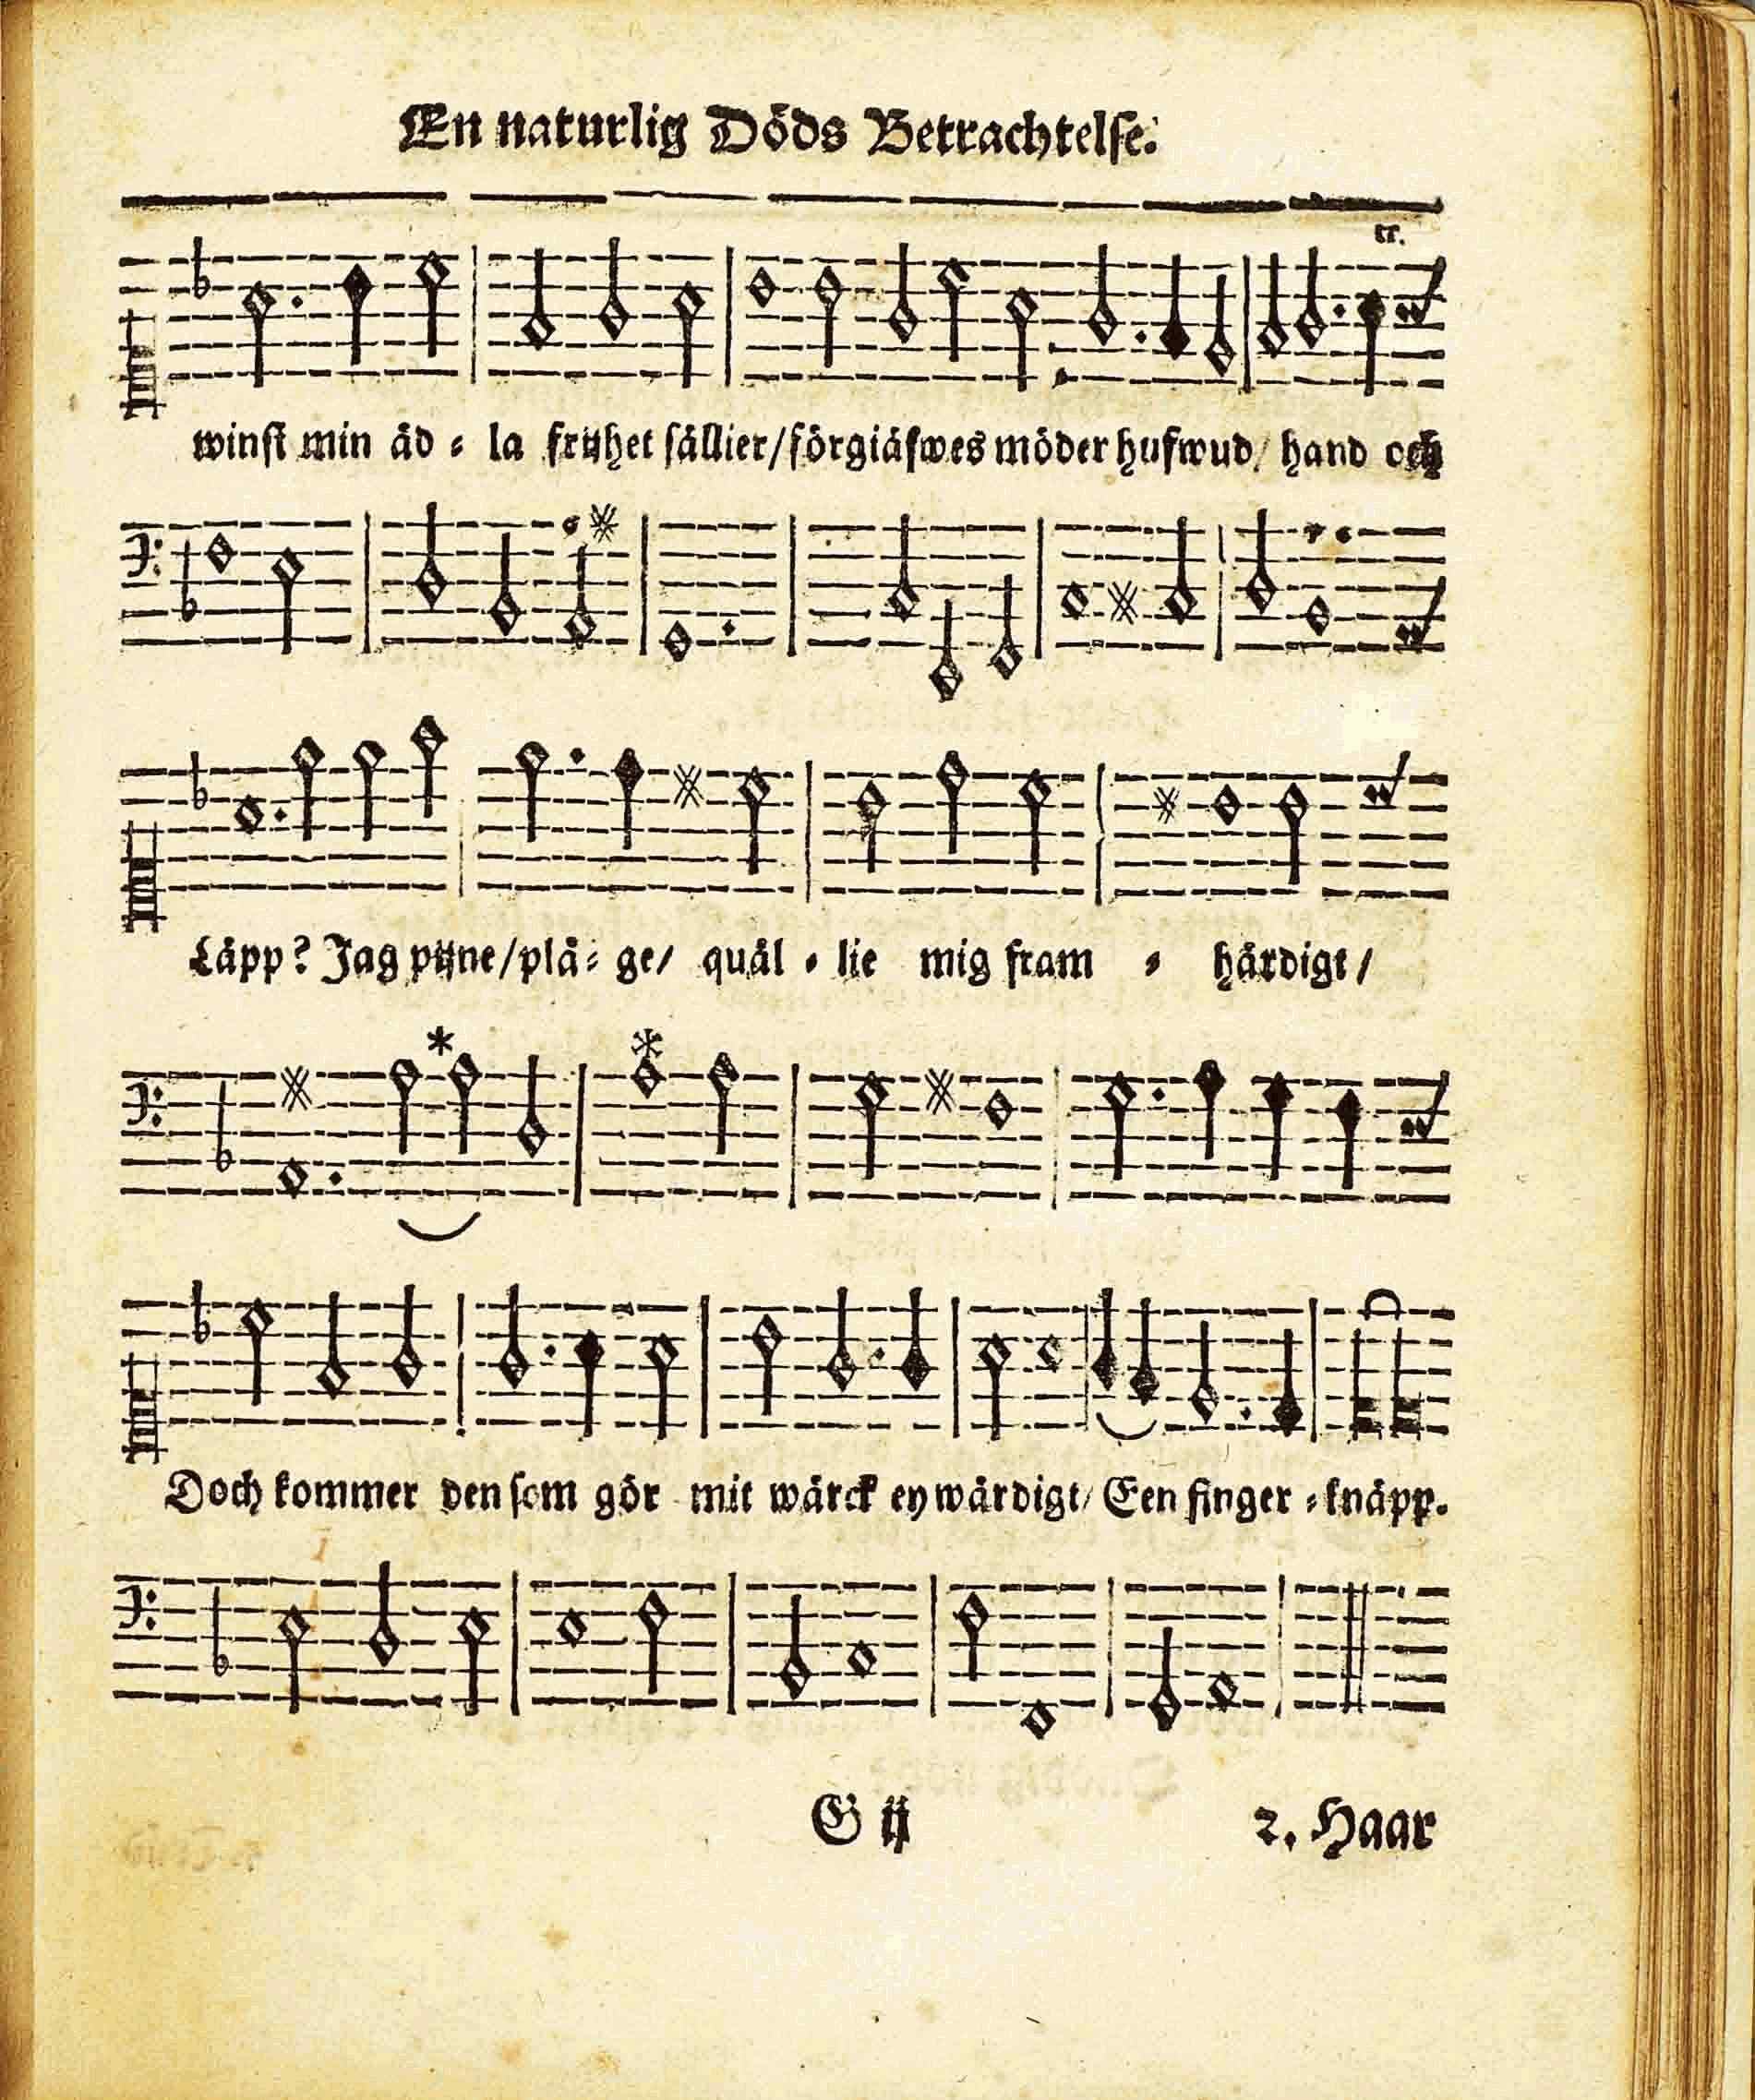 En naturlig Döds Betrachtelse.
tr.
winst min äd = la frijhet sällier/förgiäfwes möder hufwud/ hand och
Läpp? Jag pijne/plå= ge/ quäl = lie mig fram = härdigt/
Doch kommer den som gör mit wärck ey wärdigt/ Een finger = knäpp.
G ij 2. Haar